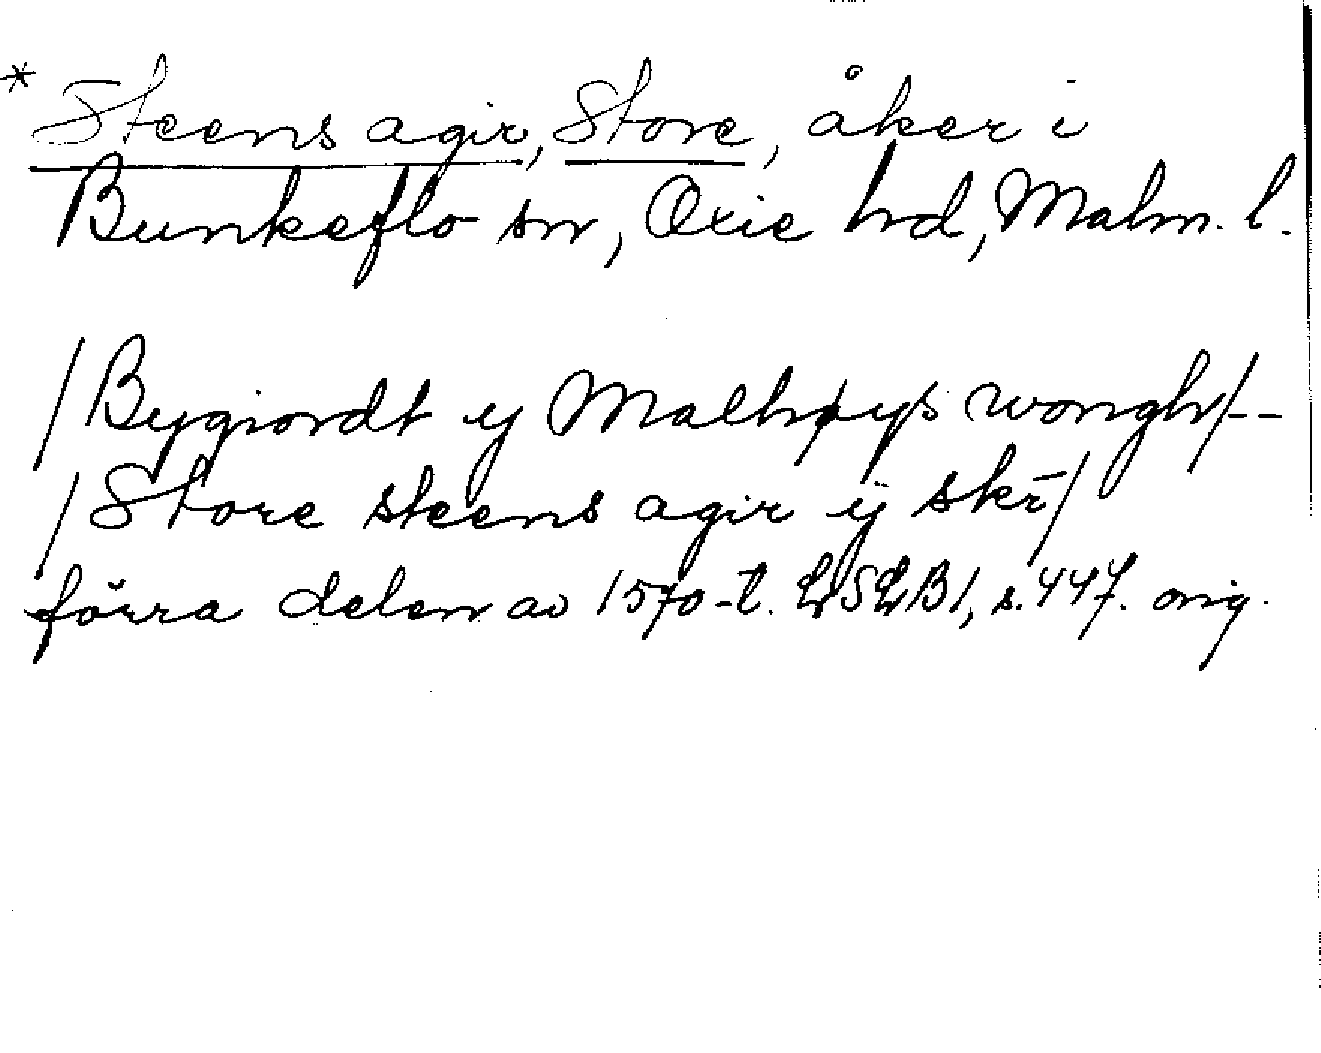 * Steens agir, Store, åker i
Bunkeflo sn, Oxie hd, Malm. l.
/Bygiordt ij Malhøys wongh/--
/Store steens agir ij skr̄/
förra delen av 1570-t. LSLB1, s. 447. orig.